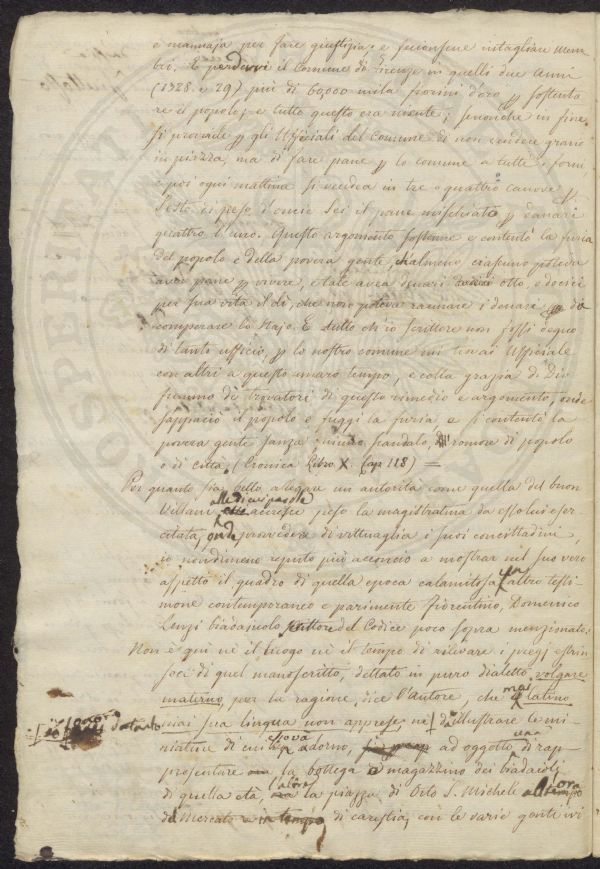 e mannaja per fare giustizia, e feciousene intagliare mem-
bri. E perdevvi il Comune di Firenze in quelli due anni
(1328 e 29) più di 60,000 mila fiorini d'oro p sostenta
re il popolo; e tutto questo era niente; senonche in fine
si provvide p gli Ufficiali del Comune di non vendere grano
in piazza, ma di fare pane p lo comune a tutti i forni
e poi ogni mattina si vendea in tre o quattro canove p
Sesto di peso d'oncie Sei il pane mischiato p danari
quattro l'uno. Questo argomento sostenne e contentò la furia
del popolo e della povera gente, ch'almeno ciascuno potea
aver pane p vivere, e tale avea danari otto, o dodici
per sua vita il dì, che non poteva raunare i denari da
comperare lo stajo. E tutto ch'io scrittore non fossi degno
di tanto ufficio, p lo nostro comune mi trovai Uffiziale
con altri a questo amaro tempo, e colla grazia di Dio
fummo de' trovatori di questo rimedio e argomento, onde
s'appaciò il popolo e fuggì la furia e si contentò la
povera gente sanza niuno scandalo, romore di popolo
o di Città (Cronica Libro X. Cap 118) =
Per quanto sia bello allegare un autorità come quella del buon
Villani, alle di cui parole accresce peso la magistratura da esso lui eser-
citata, onde provvedere di vittuaglia i suoi concittadini,
io nondimeno reputo più acconcio a mostrar nel suo vero
aspetto il quadro di quella epoca calamitosa un altro testi-
mone contemporaneo e parimente fiorentino, Domenico
Lenzi biadajuolo scrittore del Codice poco sopra menzionato.
Non è qui nè il luogo nè il tempo di rilevare i pregj estrin-
seci di quel manoscritto, dettato in puro dialetto volgare
materno, per la ragione, dice l'Autore, che mai latino
mai sua lingua non apprese nè d'illustrare le mi-
niature di cui trova adorno, ad oggetto di rap-
presentare la bottega o magazzino dei biadaioli
di quella età, la piazza di Orto S. Michele allora
di Mercato di carestia, con le varie genti ivi